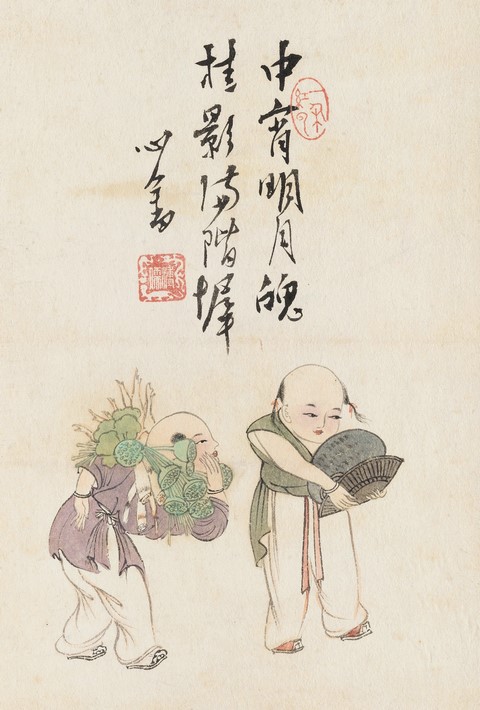 中宵明月魄
桂影滿階墀
心畬